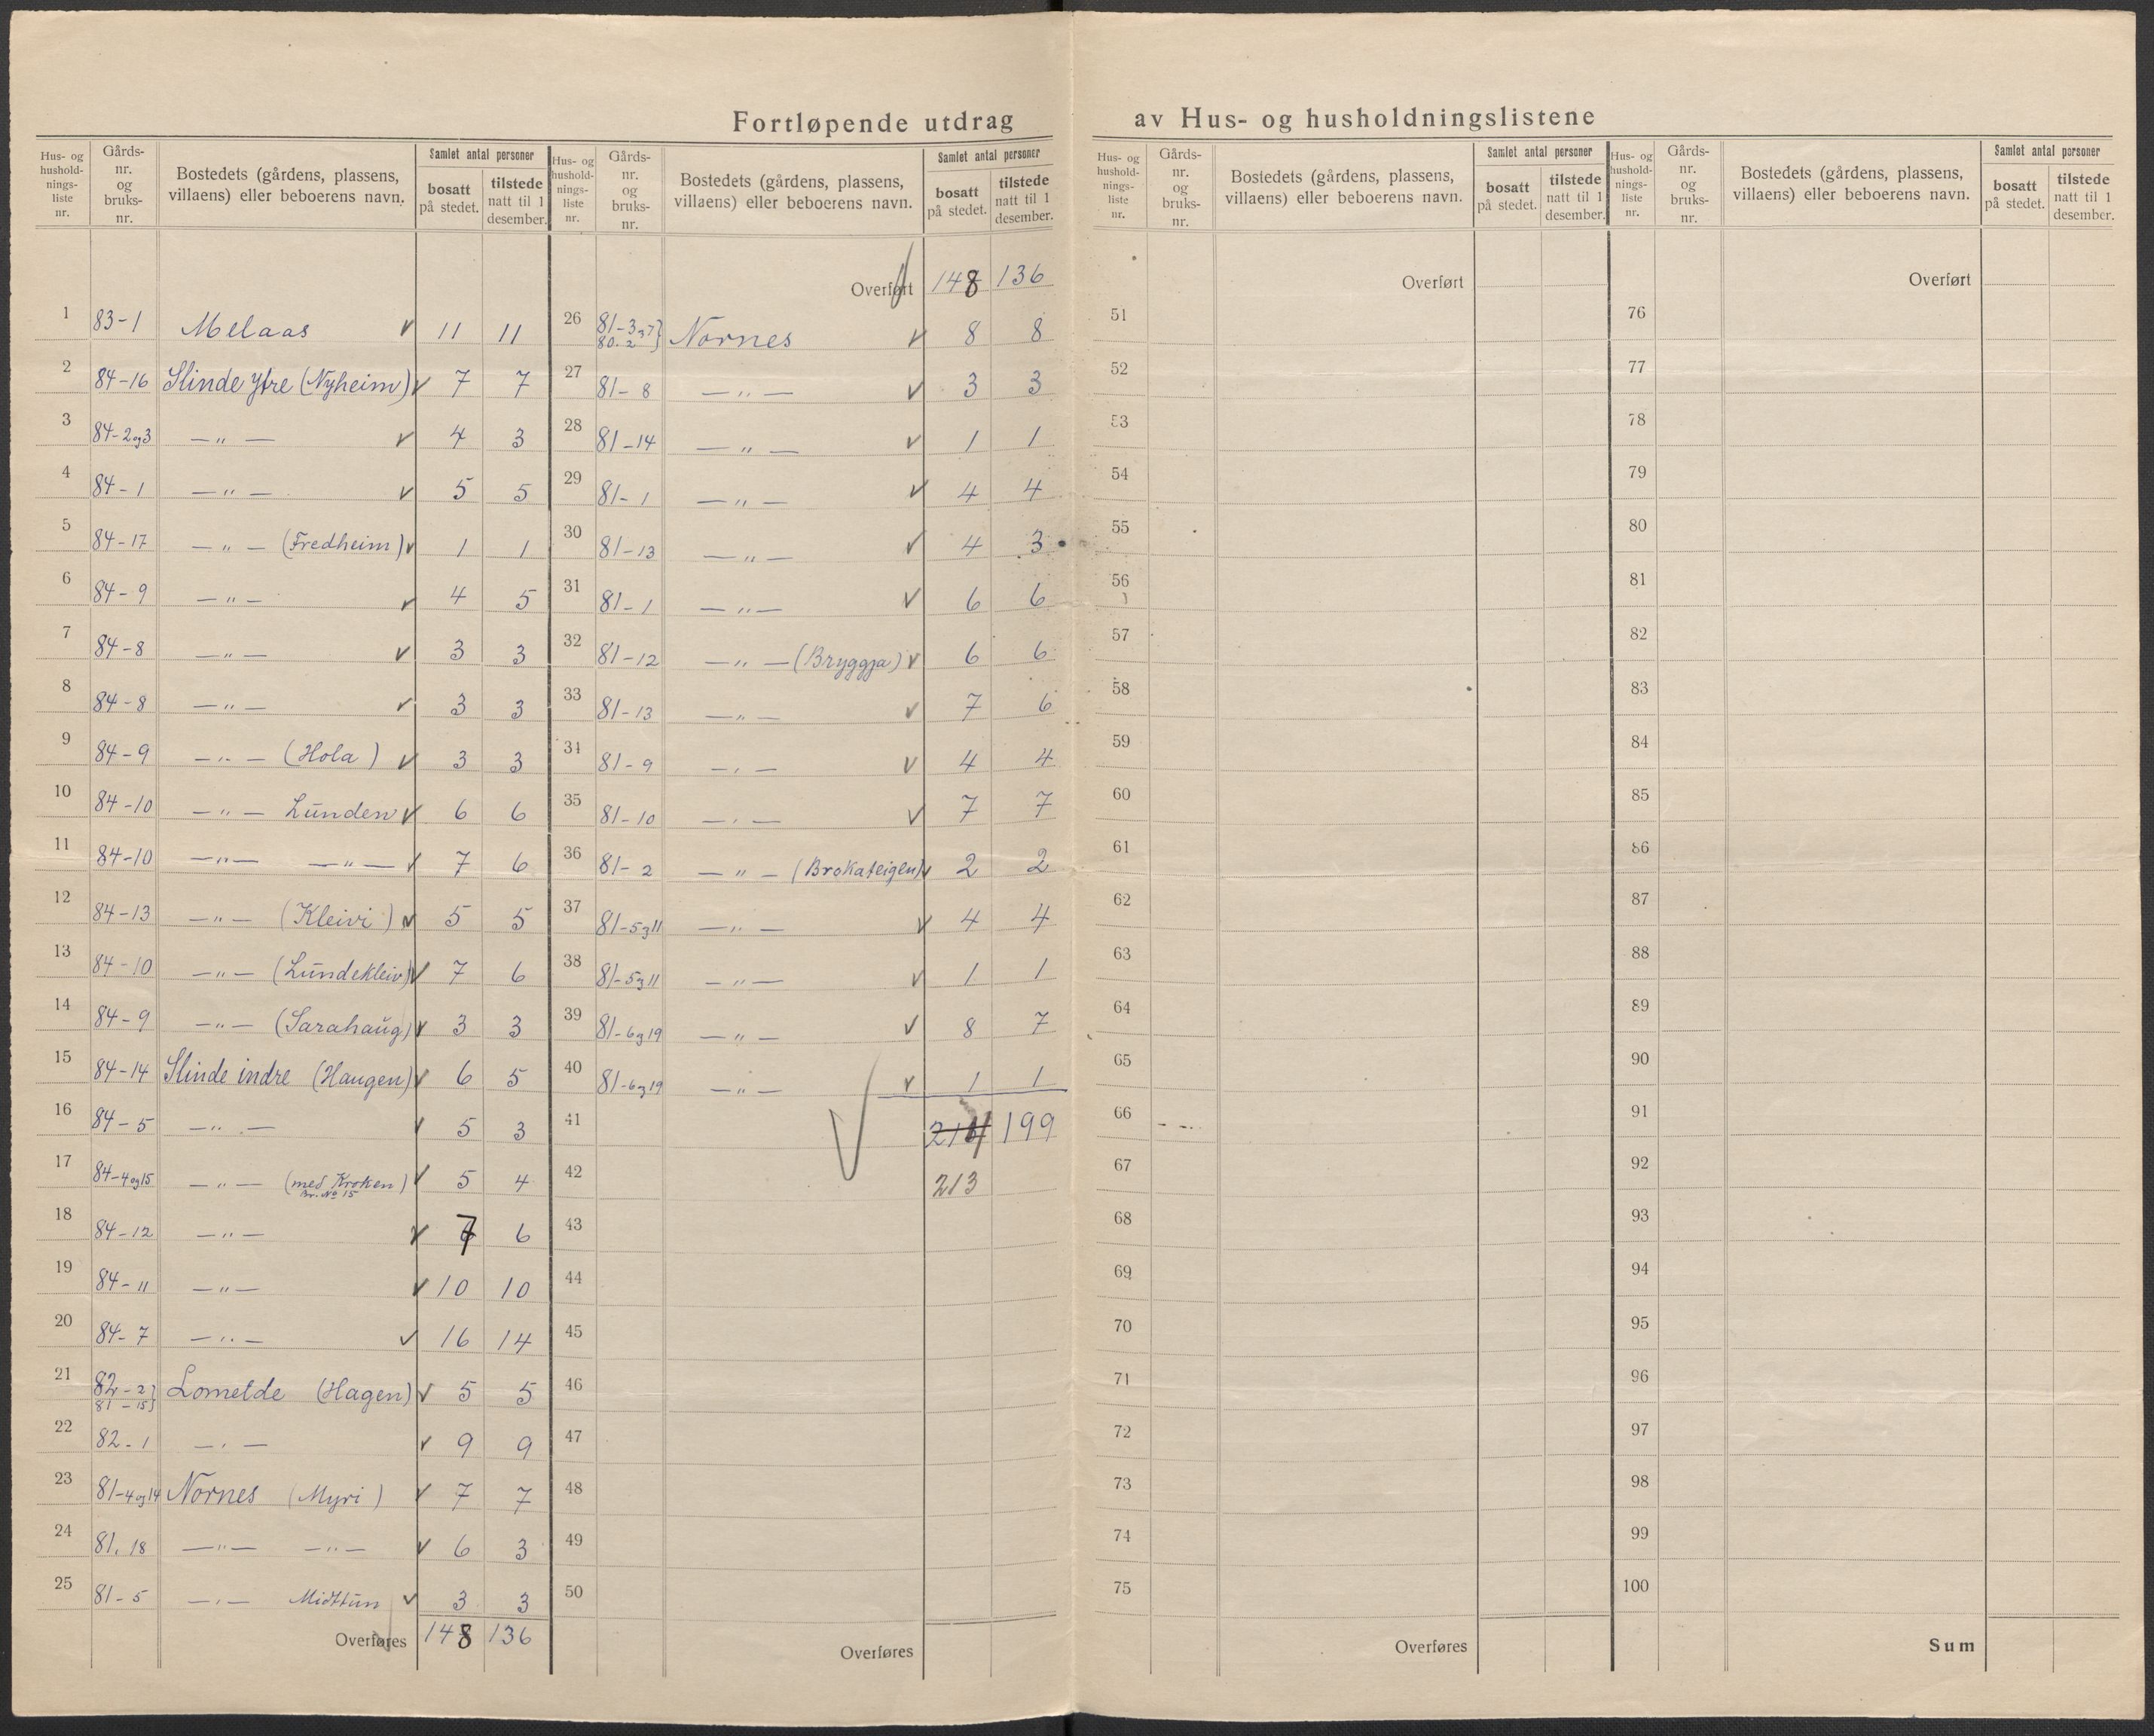 Fortløpende utdrag av Hus- og husholdningslistene
Hus- og hushold-nings-liste nr. Gårds-nr. og bruks-nr. Bostedets (gårdens, plassens, villaens) eller beboerens navn. Samlet antal personer bosatt på stedet. tilstede natt til 1 desember.
1 83-1 Melaas v 11 11
2 84-16 Slinde Ytre (Nyheim) v 7 7
3 84-2og3 —„— v 4 3
4 84-1 —„— v 5 5
5 84-17 —„— (Fredheim) v 1 1
6 84-9 —„— v 4 5
7 84-8 —„— v 3 3
8 84-8 —„— v 3 3
9 84-9 —„— (Hola) v 3 3
10 84-10 —„— Lunden v 6 6
11 84-10 —„— —„— v 7 6
12 84-13 —„— (Kleivi) v 5 5
13 84-10 —„— (Lundekleiv) v 7 6
14 84-9 —„— (Sarahaug) v 3 3
15 84-14 Slinde indre (Haugen) v 6 5
16 84-5 —„— v 5 3
17 84-4og15 —„— (med Kroken) v 5 4
Br. No 15
18 84-12 —„— v 7 6
19 84-11 —„— v 10 10
20 84-7 —„— v 16 14
21 82-2} Lomelde (Hagen) v 5 5
81-15}
22 82-1 —„— v 9 9
23 81-4og14 Nornes (Myri) v 7 7
24 81.18 —„— —„— v 6 3
25 81-5 —„— Midttun v 3 3
Overføres 148 136
Hus- og hushold-nings-liste nr. Gårds-nr. og bruks-nr. Bostedets (gårdens, plassens, villaens) eller beboerens navn. Samlet antal personer bosatt på stedet. tilstede natt til 1 desember.
Overført 148 136
26 81-3og7} Nornes v 8 8
80.2}
27 81-8 —„— v 3 3
28 81-14 —„— v 1 1
29 81-1 —„— v 4 4
30 81-13 —„— v 4 3
31 81-1 —„— v 6 6
32 81-12 —„— (Bryggja) v 6 6
33 81-13 —„— v 7 6
34 81-9 —„— v 4 4
35 81-10 —„— v 7 7
36 81-2 —„— (Brokateigen) v 2 2
37 81-5og11 —„— v 4 4
38 81-5og11 —„— v 1 1
39 81-6og19 —„— v 8 7
40 81-6og19 —„— v 1 1
41 214 199
42 213
43
44
45
46
47
48
49
50
Overføres
Hus- og hushold-nings-liste nr. Gårds-nr. og bruks-nr. Bostedets (gårdens, plassens, villaens) eller beboerens navn. Samlet antal personer bosatt på stedet. tilstede natt til 1 desember.
Overført
51
52
53
54
55
56
57
58
59
60
61
62
63
64
65
66
67
68
69
70
71
72
73
74
75
Overføres
Hus- og hushold-nings-liste nr. Gårds-nr. og bruks-nr. Bostedets (gårdens, plassens, villaens) eller beboerens navn. Samlet antal personer bosatt på stedet. tilstede natt til 1 desember.
Overført
76
77
78
79
80
81
82
83
84
85
86
87
88
89
90
91
92
93
94
95
96
97
98
99
100
Sum